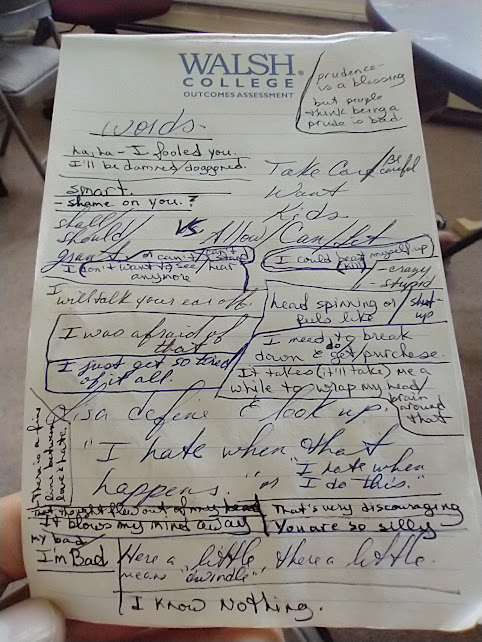 WALSH
COLLEGE
OUTCOMES ASSESSMENT
prudence-
is a blessing
but people
think being a
prude is bad.
words
ha, ha - I fooled you.
I'll be damned/doggoned.
smart.
- shame on you. ?
Take Care/Be careful
Want
Kids
shall/
should
vs
Allow/Can/Let
grant or can't/can't stand
I don't want to see/hear
anymore
I could beat/kill myself up
- crazy
- stupid
I
will talk your ear off.
head spinning or
feels like
shut-
up
I was afraid of
that
I need to break
down & do/get purchase.
I just get so tired
of it all.
It takes (it'll take) me a
while to wrap my head/
brain
around
that
Lisa define & look up.
There is a fine
line between
love & hate.
"I hate when that
happens." or "I hate when
I do this."
That thought flew out of my head
It blows my mind away
That's very discouraging
You are so silly
my bad
I'm Bad
Here a little, there a little.
means "dwindle"
I KNOW NOTHING.